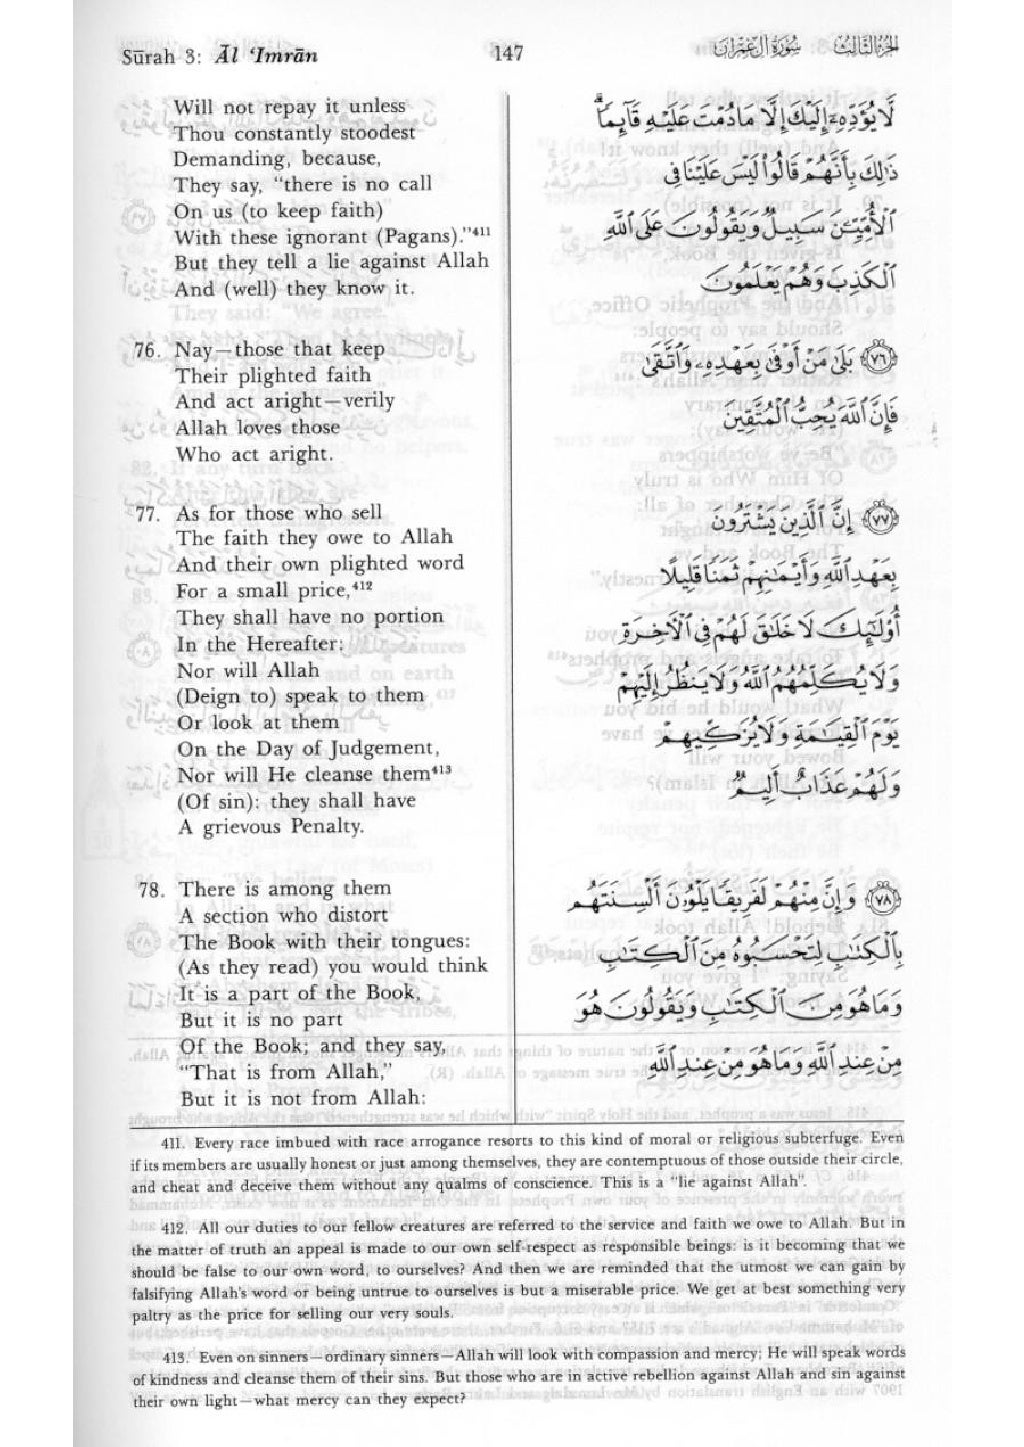 Sūrah 3: Āl ‘Imrān
147
سُورَةُ آلِ عِمْرَان
الجُزْءُ الثَّالِثُ
Will not repay it unless
Thou constantly stoodest
Demanding, because,
They say, "there is no call
On us (to keep faith)
With these ignorant (Pagans)."411
But they tell a lie against Allah
And (well) they know it.
76. Nay—those that keep
Their plighted faith
And act aright—verily
Allah loves those
Who act aright.
77. As for those who sell
The faith they owe to Allah
And their own plighted word
For a small price,412
They shall have no portion
In the Hereafter:
Nor will Allah
(Deign to) speak to them
Or look at them
On the Day of Judgement,
Nor will He cleanse them413
(Of sin): they shall have
A grievous Penalty.
78. There is among them
A section who distort
The Book with their tongues:
(As they read) you would think
It is a part of the Book,
But it is no part
Of the Book; and they say,
"That is from Allah,"
But it is not from Allah:
لَّا يُؤَدِّهِۦٓ إِلَيْكَ إِلَّا مَا دُمْتَ عَلَيْهِ قَآئِمًا ۗ
ذَٰلِكَ بِأَنَّهُمْ قَالُوا۟ لَيْسَ عَلَيْنَا فِى
ٱلْأُمِّيِّـۧنَ سَبِيلٌ وَيَقُولُونَ عَلَى ٱللَّهِ
ٱلْكَذِبَ وَهُمْ يَعْلَمُونَ
﴿٧٦﴾ بَلَىٰ مَنْ أَوْفَىٰ بِعَهْدِهِۦ وَٱتَّقَىٰ
فَإِنَّ ٱللَّهَ يُحِبُّ ٱلْمُتَّقِينَ
﴿٧٧﴾ إِنَّ ٱلَّذِينَ يَشْتَرُونَ
بِعَهْدِ ٱللَّهِ وَأَيْمَـٰنِهِمْ ثَمَنًا قَلِيلًا
أُو۟لَـٰٓئِكَ لَا خَلَـٰقَ لَهُمْ فِى ٱلْأَخِرَةِ
وَلَا يُكَلِّمُهُمُ ٱللَّهُ وَلَا يَنظُرُ إِلَيْهِمْ
يَوْمَ ٱلْقِيَـٰمَةِ وَلَا يُزَكِّيهِمْ
وَلَهُمْ عَذَابٌ أَلِيمٌ
﴿٧٨﴾ وَإِنَّ مِنْهُمْ لَفَرِيقًا يَلْوُۥنَ أَلْسِنَتَهُم
بِٱلْكِتَـٰبِ لِتَحْسَبُوهُ مِنَ ٱلْكِتَـٰبِ
وَمَا هُوَ مِنَ ٱلْكِتَـٰبِ وَيَقُولُونَ هُوَ
مِنْ عِندِ ٱللَّهِ وَمَا هُوَ مِنْ عِندِ ٱللَّهِ
411. Every race imbued with race arrogance resorts to this kind of moral or religious subterfuge. Even
if its members are usually honest or just among themselves, they are contemptuous of those outside their circle,
and cheat and deceive them without any qualms of conscience. This is a "lie against Allah".
412. All our duties to our fellow creatures are referred to the service and faith we owe to Allah. But in
the matter of truth an appeal is made to our own self-respect as responsible beings: is it becoming that we
should be false to our own word, to ourselves? And then we are reminded that the utmost we can gain by
falsifying Allah's word or being untrue to ourselves is but a miserable price. We get at best something very
paltry as the price for selling our very souls.
413. Even on sinners—ordinary sinners—Allah will look with compassion and mercy; He will speak words
of kindness and cleanse them of their sins. But those who are in active rebellion against Allah and sin against
their own light—what mercy can they expect?